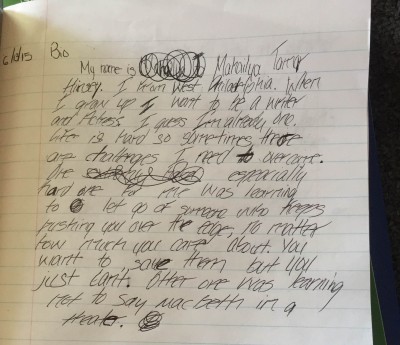 6/2/15 Bio
My name is Makailya Tamir
Hinsey. I from West Philadelphia. When
I grow up I want to be a writer
and actress. I guess I'm already one.
Life is hard so sometimes there
are challenges I need to overcome.
One especially
hard one for me was learning
to let go of someone who keeps
pushing you over the edge, no matter
how much you care about. You
want to save them but you
just can't. Other one was learning
not to say Macbeth in a
theater.